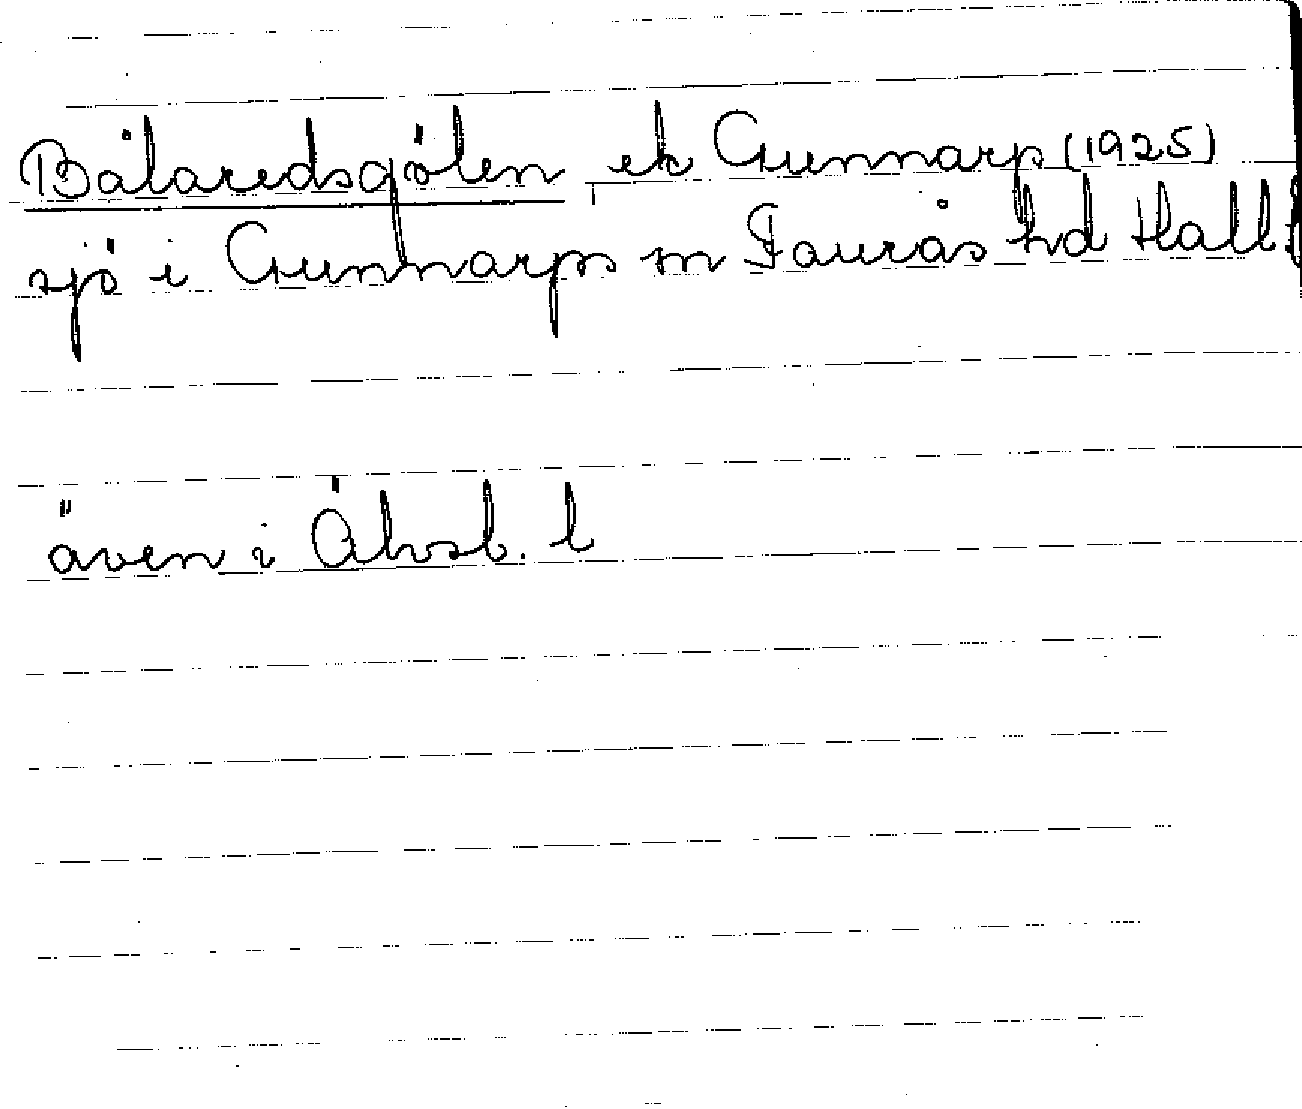 Bålaredsgölen, ek Gunnarp (1925)
sjö i Gunnarps sn Faurås hd Hall.
även i Älvsb. l